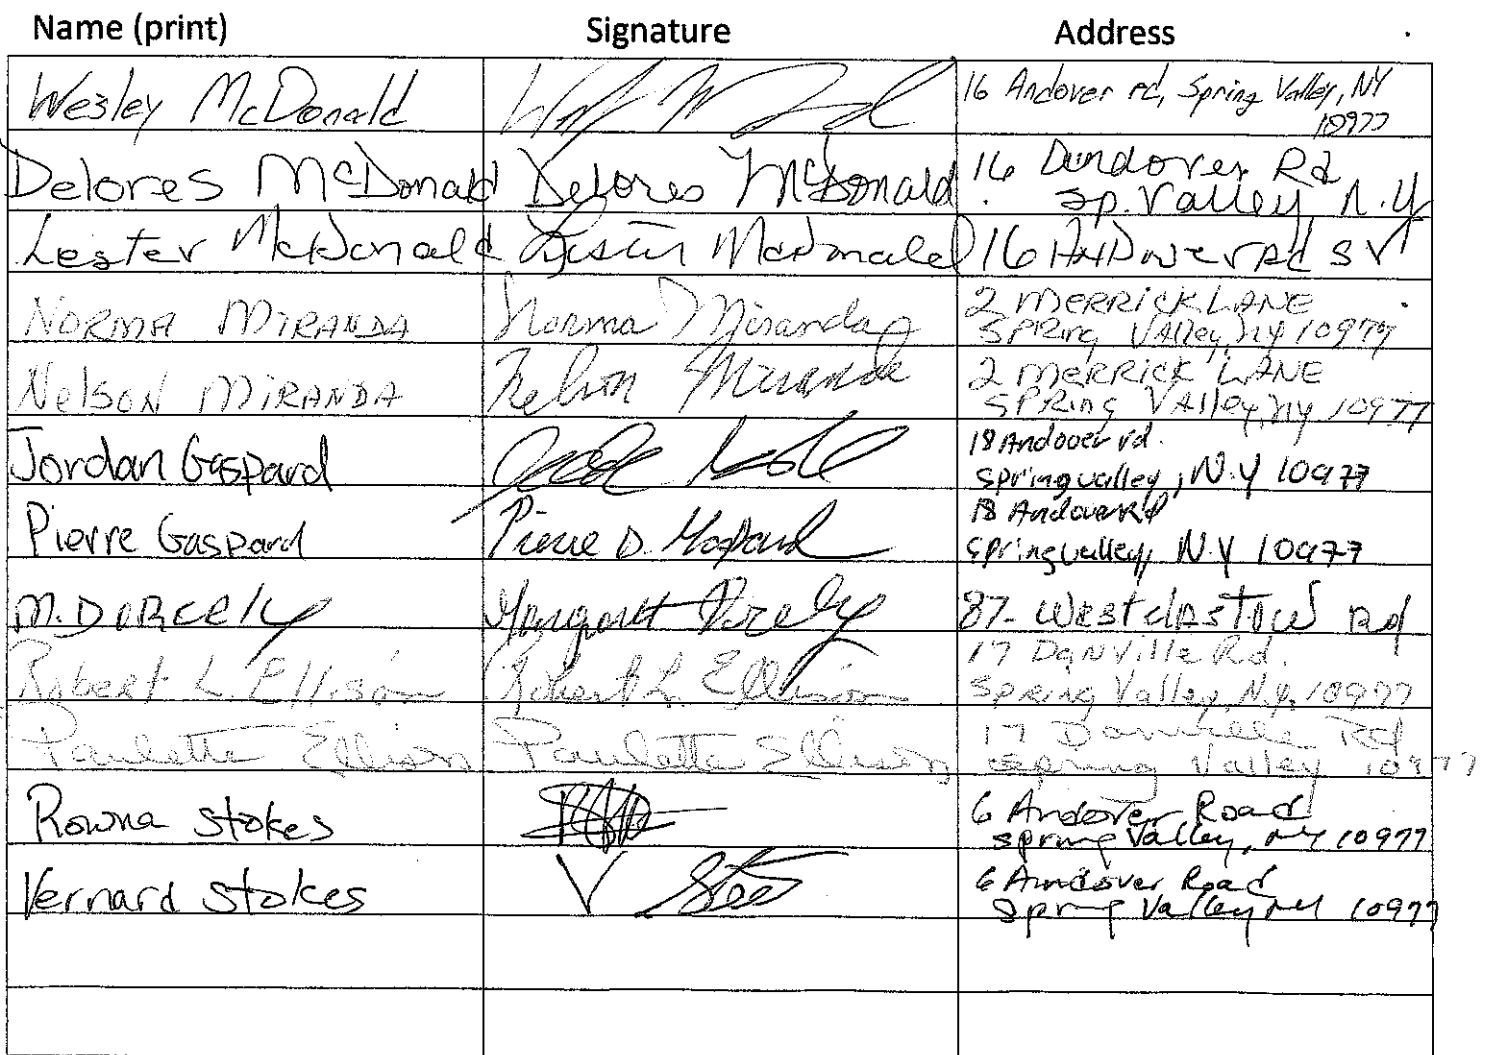 Name (print) Signature Address
Wesley McDonald 16 Andover rd, Spring Valley, NY
10977
Delores McDonald Delores McDonald 16 Andover Rd
Sp. Valley, N.Y
Lester McDonald Lester McDonald 16 ANDover Rd S V
NORMA MIRANDA Norma Miranda 2 MERRICK LANE
SPRing VAlley, NY 10977
NelsON MIRANDA Nelson Miranda 2 MERRICK LANE
SPRing VAlley, NY 10977
Jordan Gaspard 18 Andover rd.
Spring valley, N.Y 10977
Pierre Gaspard Pierre D. Gaspard 18 Andover Rd
Spring valley, N.Y 10977
M. DORCELY Margarett Dorcely 87- West Rd
Robert L. Ellison Robert L. Ellison 17 Danville Rd.
Spring Valley, N.Y. 10977
Paulette Ellison Paulette Ellison 17 Danville Rd
Spring Valley 10977
Rowna Stokes 6 Andover Road
Spring Valley, NY 10977
Vernard Stokes V Stokes 6 Andover Road
Spring Valley NY 10977